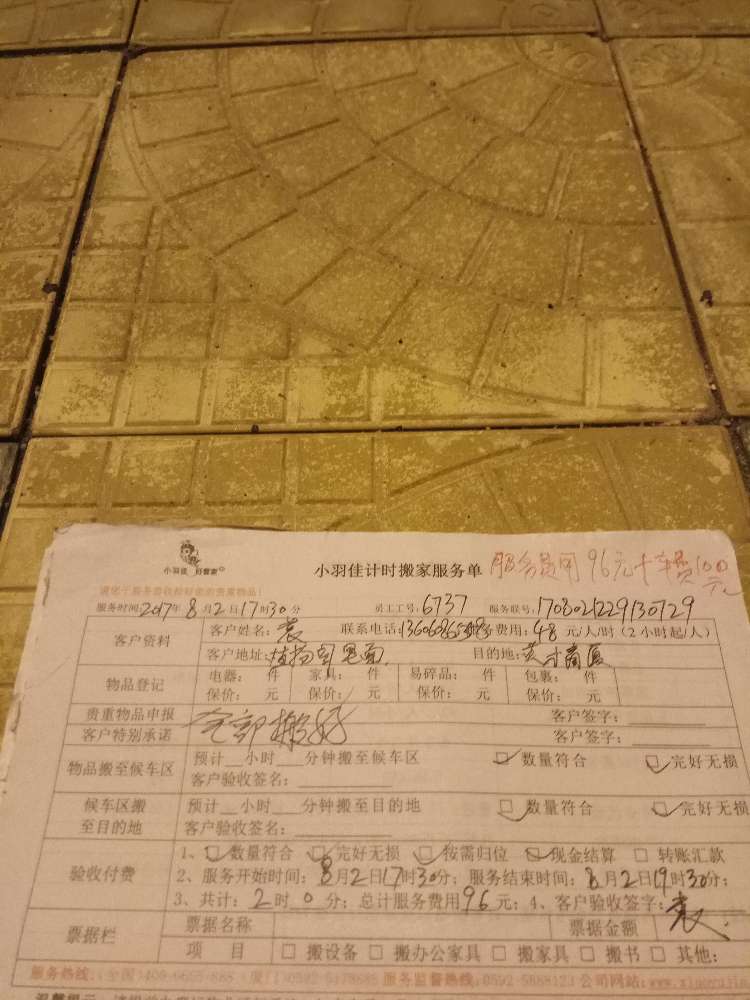 小羽佳 好管家
小羽佳计时搬家服务单 服务员用 96元+车费100元
服务时间2017年8月2日17时30分 员工工号:6737 服务联号:1708021229130729
客户资料 客户姓名:袁 联系电话: 费用:48元/人/时(2小时起/人)
客户地址:植物园里面 目的地:
物品登记 电器: 件 家具: 件 易碎品: 件 包裹: 件
保价: 元 保价: 元 保价: 元 保价: 元
贵重物品申报 客户签字:
客户特别承诺 全部搬好 客户签字:
物品搬至候车区 预计__小时__分钟搬至候车区 数量符合 完好无损
客户验收签名:
候车区搬至目的地 预计__小时__分钟搬至目的地 数量符合 完好无损
客户验收签名:
验收付费 1、数量符合 完好无损 按需归位 现金结算 转账汇款
2、服务开始时间:8月2日17时30分;服务结束时间:8月2日19时30分;
3、共计:2时0分;总计服务费用96元;4、客户验收签字:袁
票据栏 票据名称 票据金额
项 目 搬设备 搬办公家具 搬家具 搬书 其他:
服务热线: 服务监督热线: 公司网站: